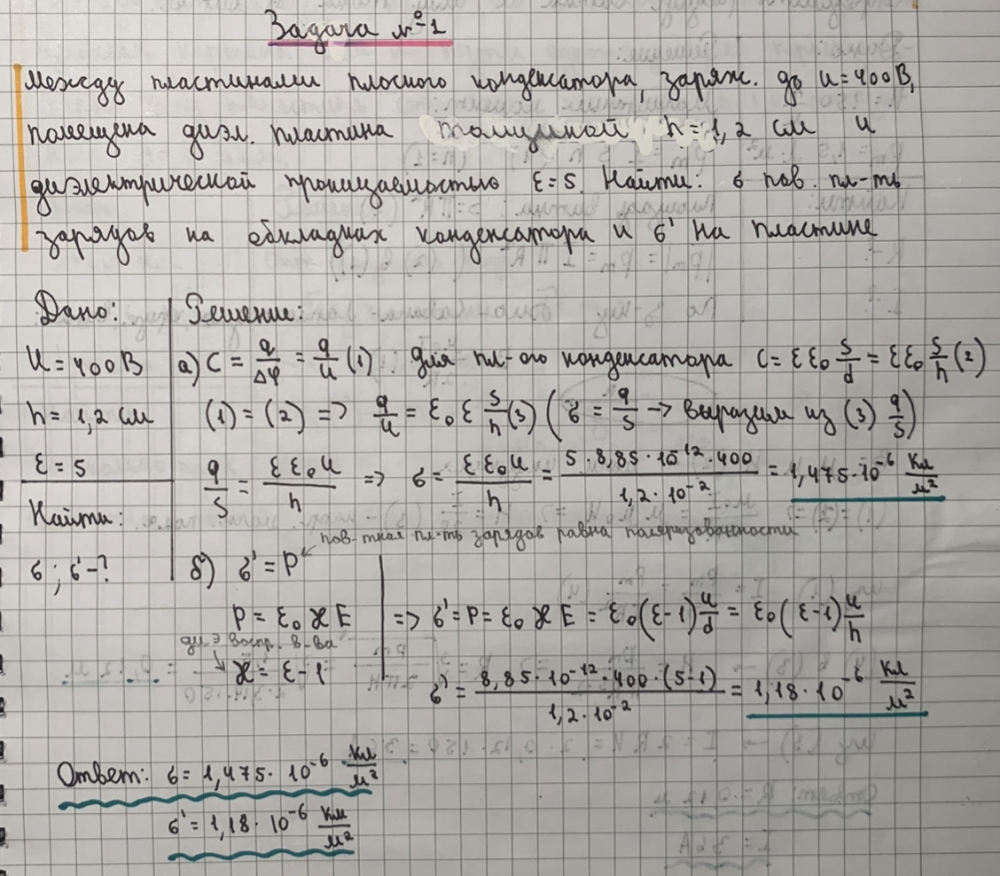 Задача №1
Между пластинами плоского конденсатора, заряж. до U = 400 В,
помещена диэл. пластина толщиной h = 1,2 см и
диэлектрической проницаемостью ε = 5. Найти: σ пов. пл-ть
зарядов на обкладках конденсатора и σ' на пластине
Дано:
U = 400 В
h = 1,2 см
ε = 5
Найти:
σ ; σ' - ?
Решение:
а) C = q/Δφ = q/U (1) для пл-ого конденсатора C = εε₀ S/d = εε₀ S/h (2)
(1) = (2) => q/U = ε₀ε S/h (3) (σ = q/S → выразим из (3) q/S)
q/S = εε₀U/h => σ = εε₀U/h = 5 · 8,85 · 10⁻¹² · 400/1,2 · 10⁻² = 1,475 · 10⁻⁶ Кл/м²
пов-тная пл-ть зарядов равна поляризованности
б) σ' = P
P = ε₀ ϰ E
диэ. воспр. в-ва
ϰ = ε - 1
=> σ' = P = ε₀ ϰ E = ε₀ (ε - 1) U/d = ε₀ (ε - 1) U/h
σ' = 8,85 · 10⁻¹² · 400 · (5 - 1)/1,2 · 10⁻² = 1,18 · 10⁻⁶ Кл/м²
Ответ: σ = 1,475 · 10⁻⁶ Кл/м²
σ' = 1,18 · 10⁻⁶ Кл/м²